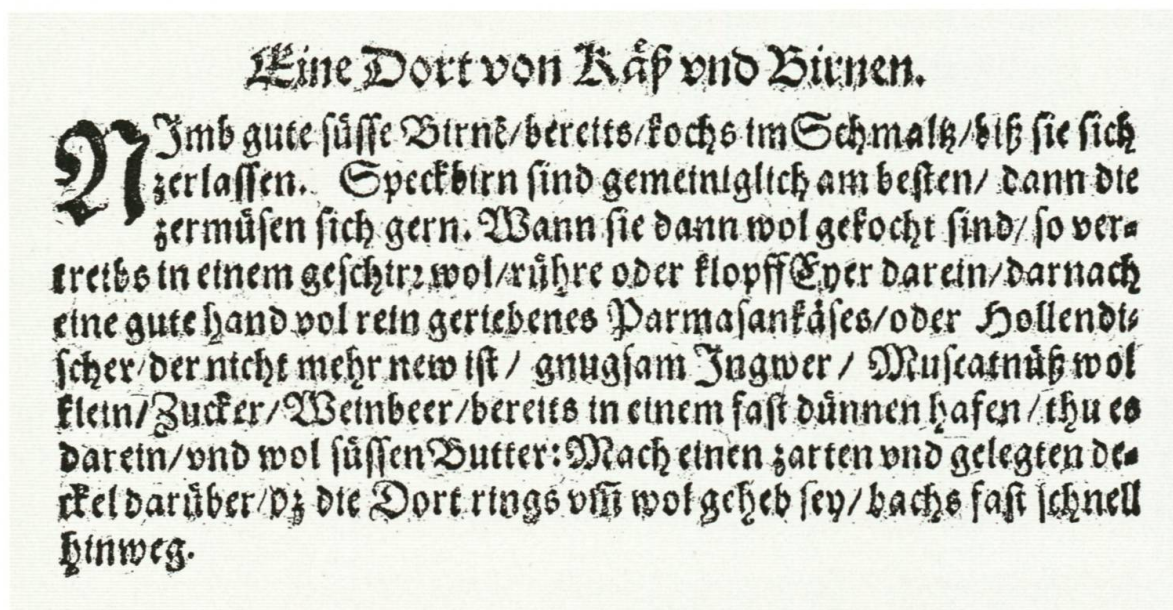 Eine Dort von Käß vnd Birnen.
NImb gute süsse Birnẽ/bereits/kochs im Schmaltz/biß sie sich
zerlassen. Speckbirn sind gemeiniglich am besten/ dann die
zermüsen sich gern. Wann sie dann wol gekocht sind/ so ver-
treibs in einem geschirꝛ wol/rühre oder klopff Eyer darein/darnach
eine gute hand vol rein geriebenes Parmasankäses/oder Hollendi-
scher/der nicht mehr new ist / gnugsam Ingwer / Muscatnüß wol
klein/Zucker/Weinbeer/bereits in einem fast dünnen hafen /thu es
darein/vnd wol süssen Butter: Mach einen zarten vnd gelegten de-
ckel darüber/dz die Dort rings vm̃ wol geheb sey/bachs fast schnell
hinweg.